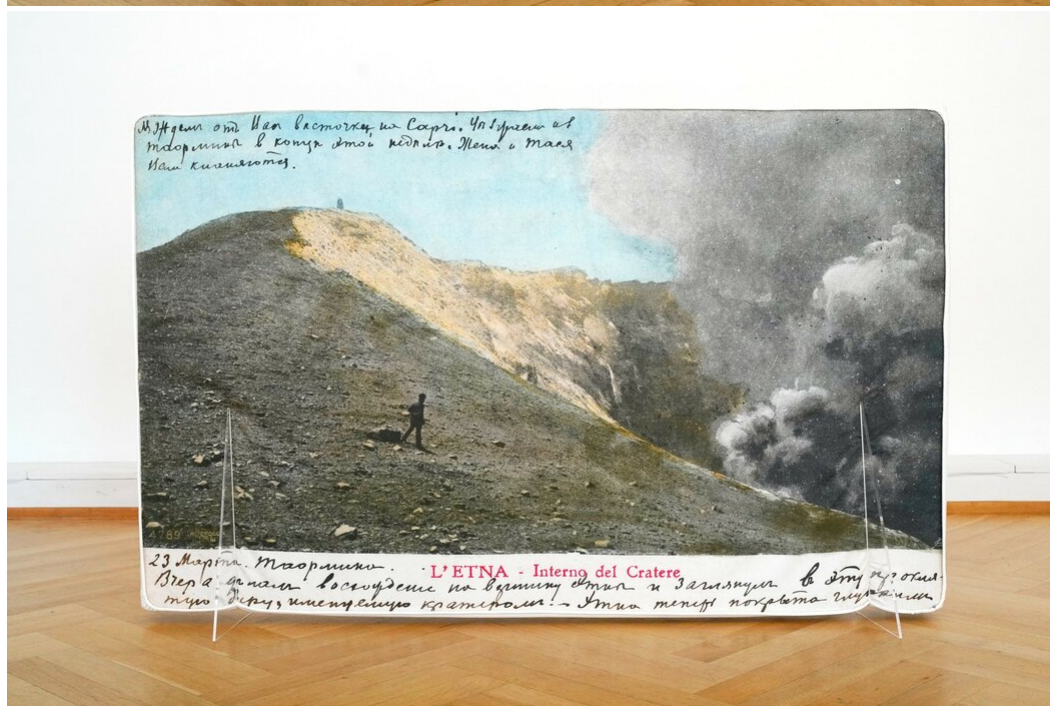 Ждем от Вас весточку на Capri. Уезжаем из
Таормины в конце этой недели. Жена и Тася
Вам кланяются.
4789
23 Марта. Таормина.
L'ETNA - Interno del Cratere
Вчера делал восхождение на вершину Этны и заглянул в эту прокля-
тую дыру, именуемую кратером. - Этна теперь покрыта глубоким